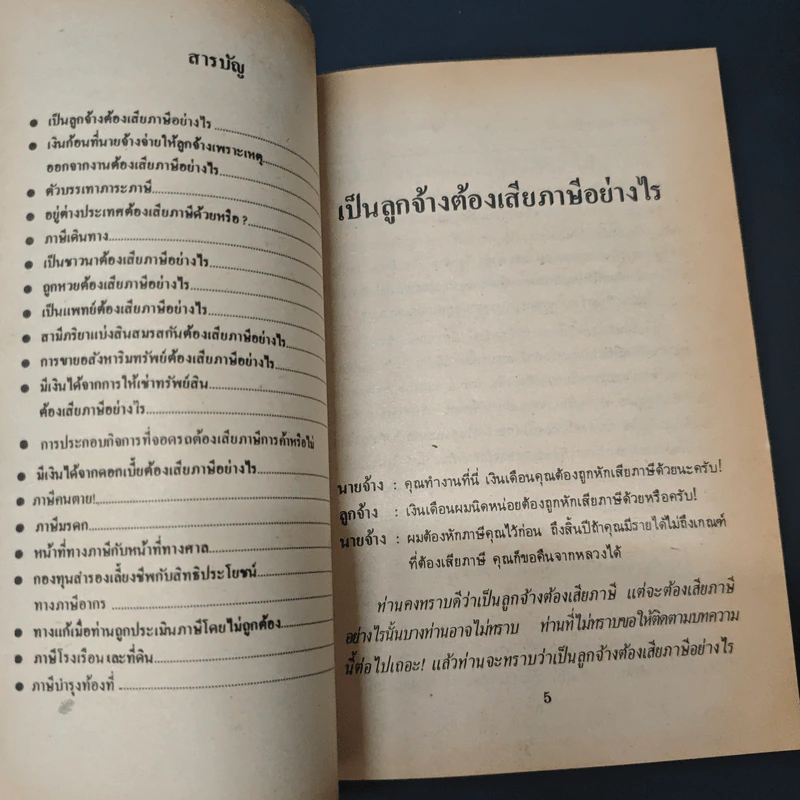 สารบัญ
● เป็นลูกจ้างต้องเสียภาษีอย่างไร
● เงินก้อนที่นายจ้างจ่ายให้ลูกจ้างเพราะเหตุ
ออกจากงานต้องเสียภาษีอย่างไร
● ตัวบรรเทาภาระภาษี
● อยู่ต่างประเทศต้องเสียภาษีด้วยหรือ ?
● ภาษีเดินทาง
● เป็นชาวนาต้องเสียภาษีอย่างไร
● ถูกหวยต้องเสียภาษีอย่างไร
● เป็นแพทย์ต้องเสียภาษีอย่างไร
● สามีภริยาแบ่งสินสมรสกันต้องเสียภาษีอย่างไร
● การขายอสังหาริมทรัพย์ต้องเสียภาษีอย่างไร
● มีเงินได้จากการให้เช่าทรัพย์สิน
ต้องเสียภาษีอย่างไร
● การประกอบกิจการที่จอดรถต้องเสียภาษีการค้าหรือไม่
● มีเงินได้จากดอกเบี้ยต้องเสียภาษีอย่างไร
● ภาษีคนตาย!
● ภาษีมรดก
● หน้าที่ทางภาษีกับหน้าที่ทางศาล
● กองทุนสำรองเลี้ยงชีพกับสิทธิประโยชน์
ทางภาษีอากร
● ทางแก้เมื่อท่านถูกประเมินภาษีโดยไม่ถูกต้อง
● ภาษีโรงเรือนและที่ดิน
● ภาษีบำรุงท้องที่
เป็นลูกจ้างต้องเสียภาษีอย่างไร
นายจ้าง : คุณทำงานที่นี่ เงินเดือนคุณต้องถูกหักเสียภาษีด้วยนะครับ!
ลูกจ้าง : เงินเดือนผมนิดหน่อยต้องถูกหักเสียภาษีด้วยหรือครับ!
นายจ้าง : ผมต้องหักภาษีคุณไว้ก่อน ถึงสิ้นปีถ้าคุณมีรายได้ไม่ถึงเกณฑ์
ที่ต้องเสียภาษี คุณก็ขอคืนจากหลวงได้
ท่านคงทราบดีว่าเป็นลูกจ้างต้องเสียภาษี แต่จะต้องเสียภาษี
อย่างไรนั้นบางท่านอาจไม่ทราบ ท่านที่ไม่ทราบขอให้ติดตามบทความ
นี้ต่อไปเถอะ! แล้วท่านจะทราบว่าเป็นลูกจ้างต้องเสียภาษีอย่างไร
5